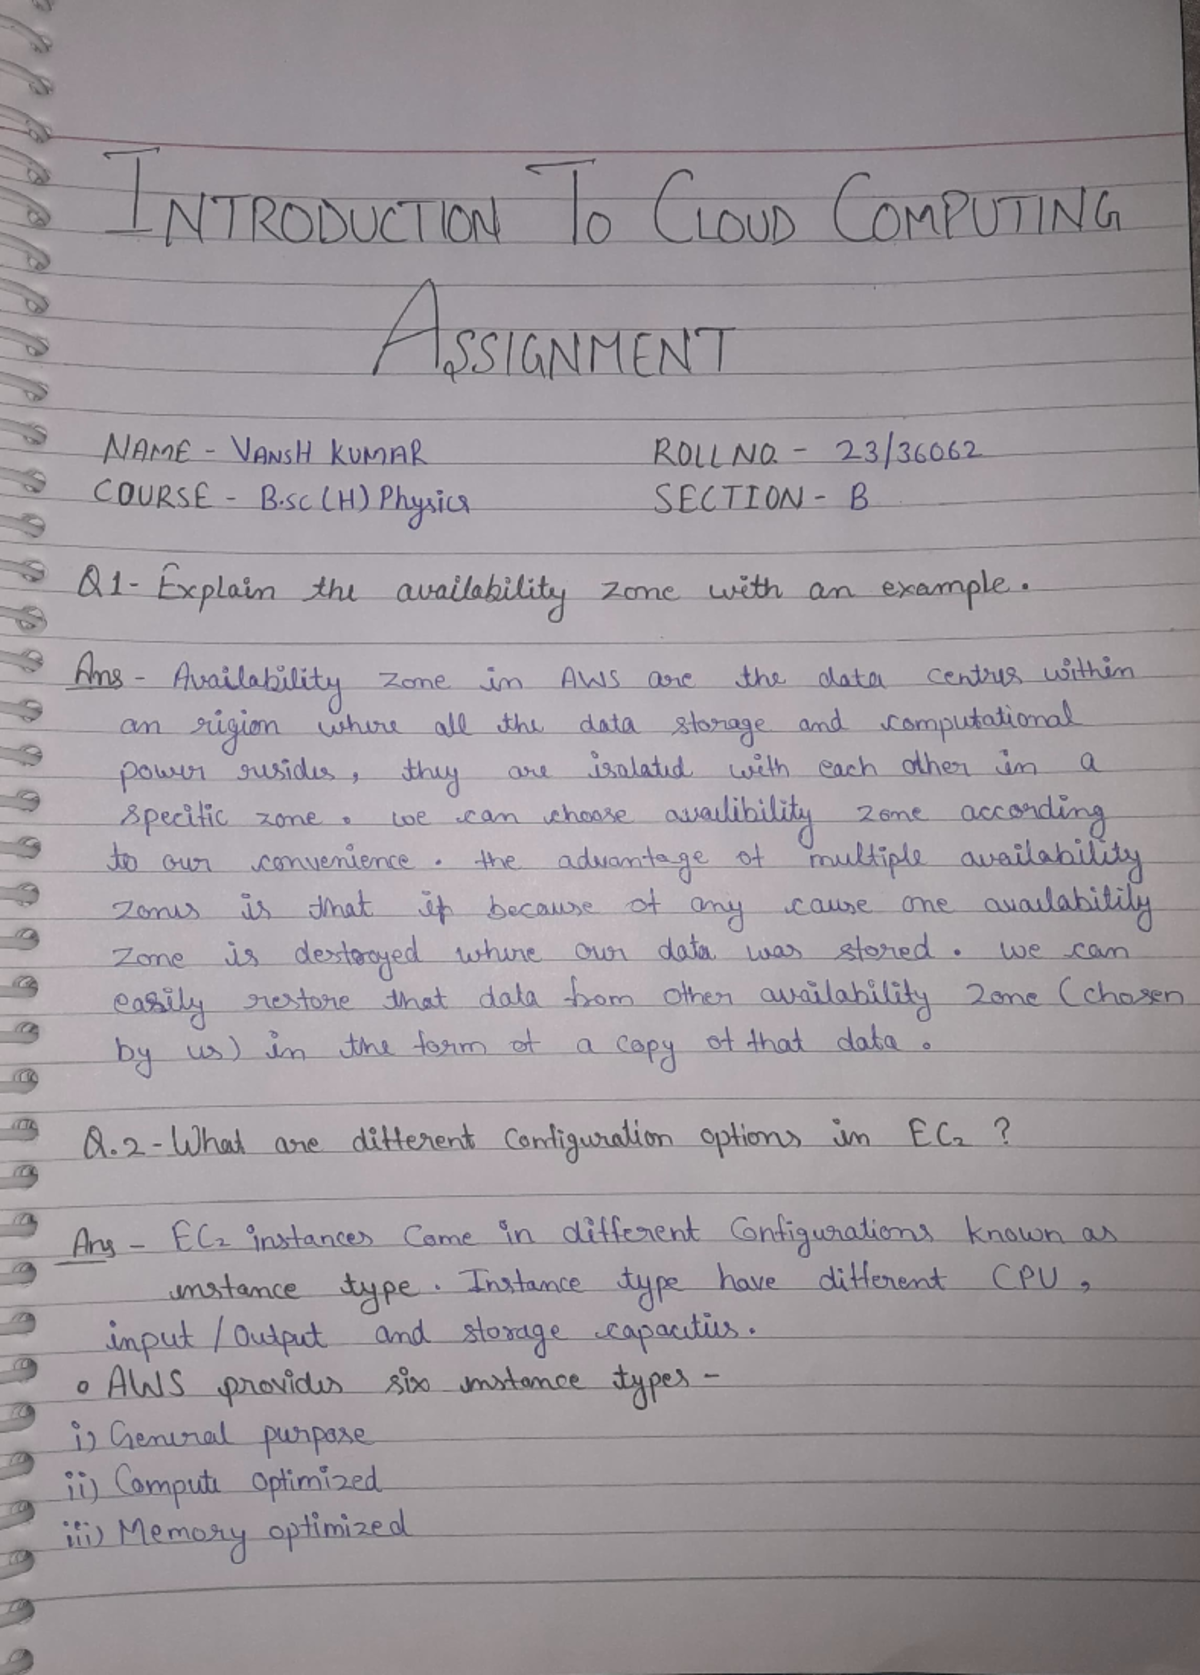 INTRODUCTION TO CLOUD COMPUTING
ASSIGNMENT
NAME - VANSH KUMAR ROLL NO. - 23/36062
COURSE - B.sc (H) Physics SECTION - B
Q1- Explain the availability zone with an example.
Ans - Availability zone in AWS are the data centres within
an rigion where all the data storage and computational
power resides, they are isolated with each other in a
specific zone. we can choose availibility zone according
to our convenience. the advantage of multiple availability
zones is that if because of any cause one availability
zone is destroyed where our data was stored. we can
easily restore that data from other availability zone (chosen
by us) in the form of a copy of that data.
Q.2 - What are different configuration options in EC2 ?
Ans - EC2 instances come in different configurations known as
instance type. Instance type have different CPU,
input / output and storage capacities.
o AWS provides six instance types -
i) General purpose
ii) Compute optimized
iii) Memory optimized